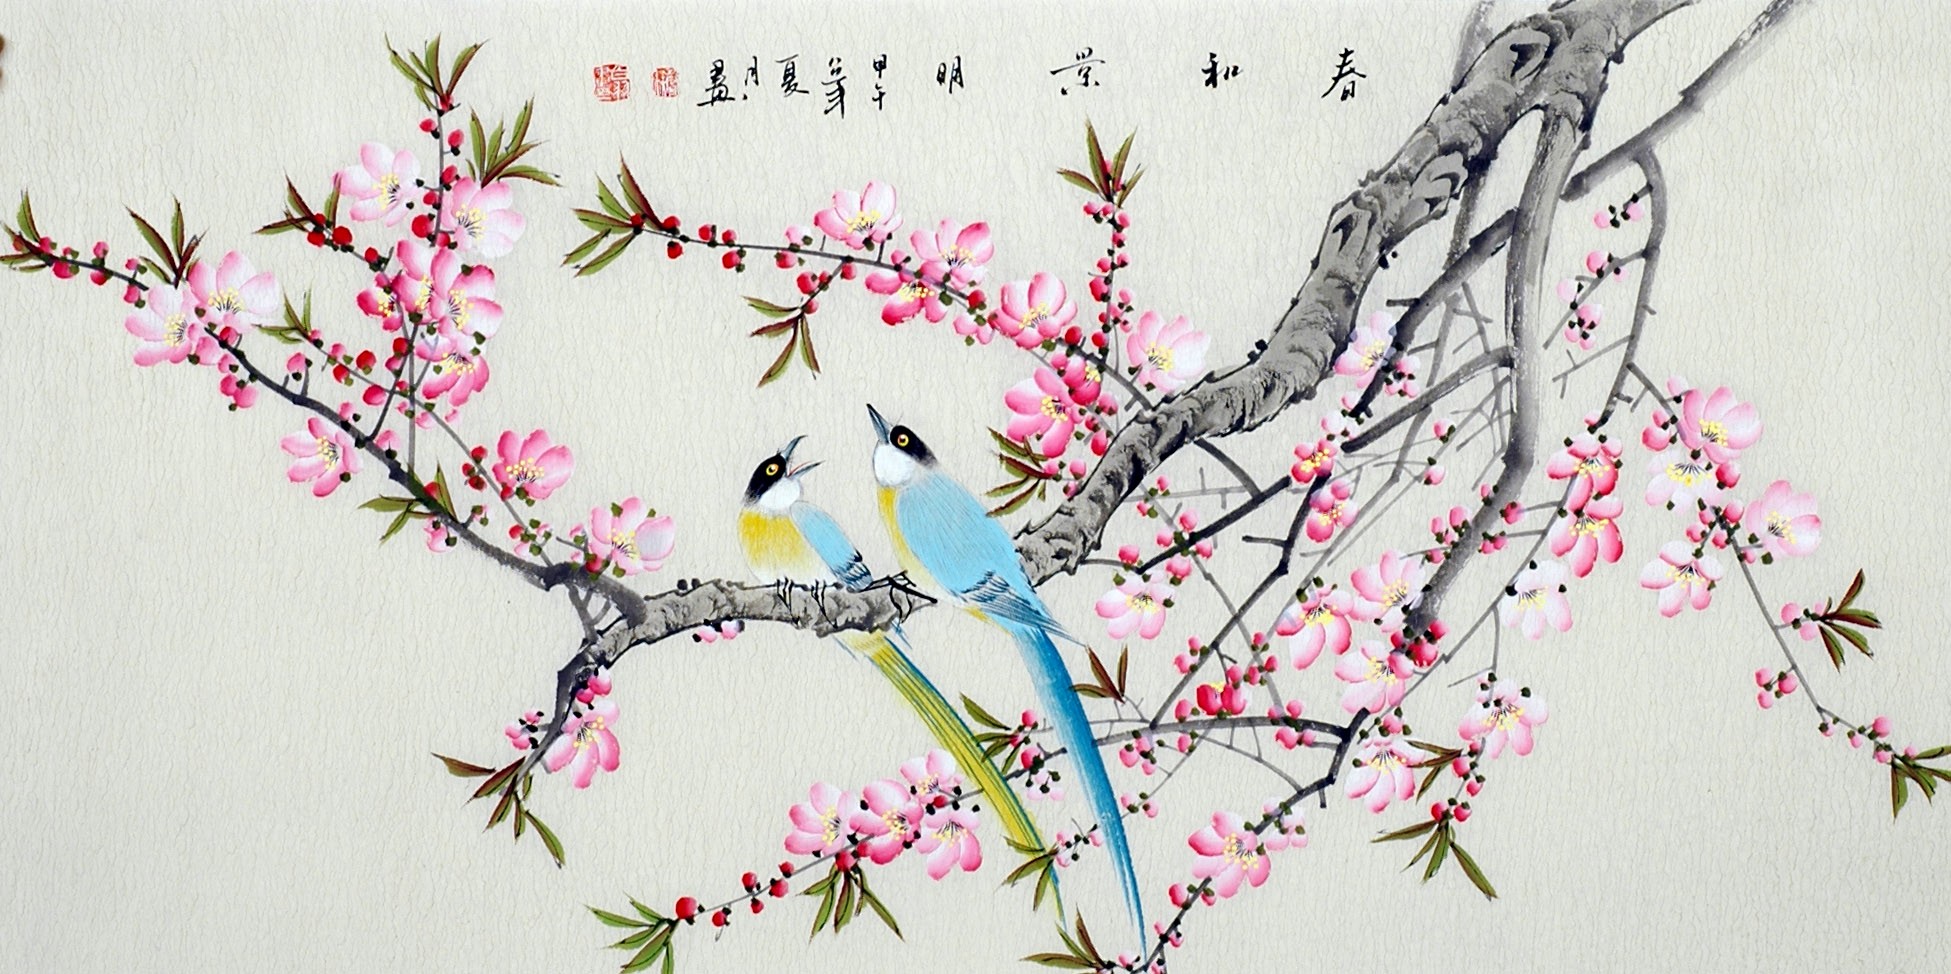 春和景明
甲午年夏月